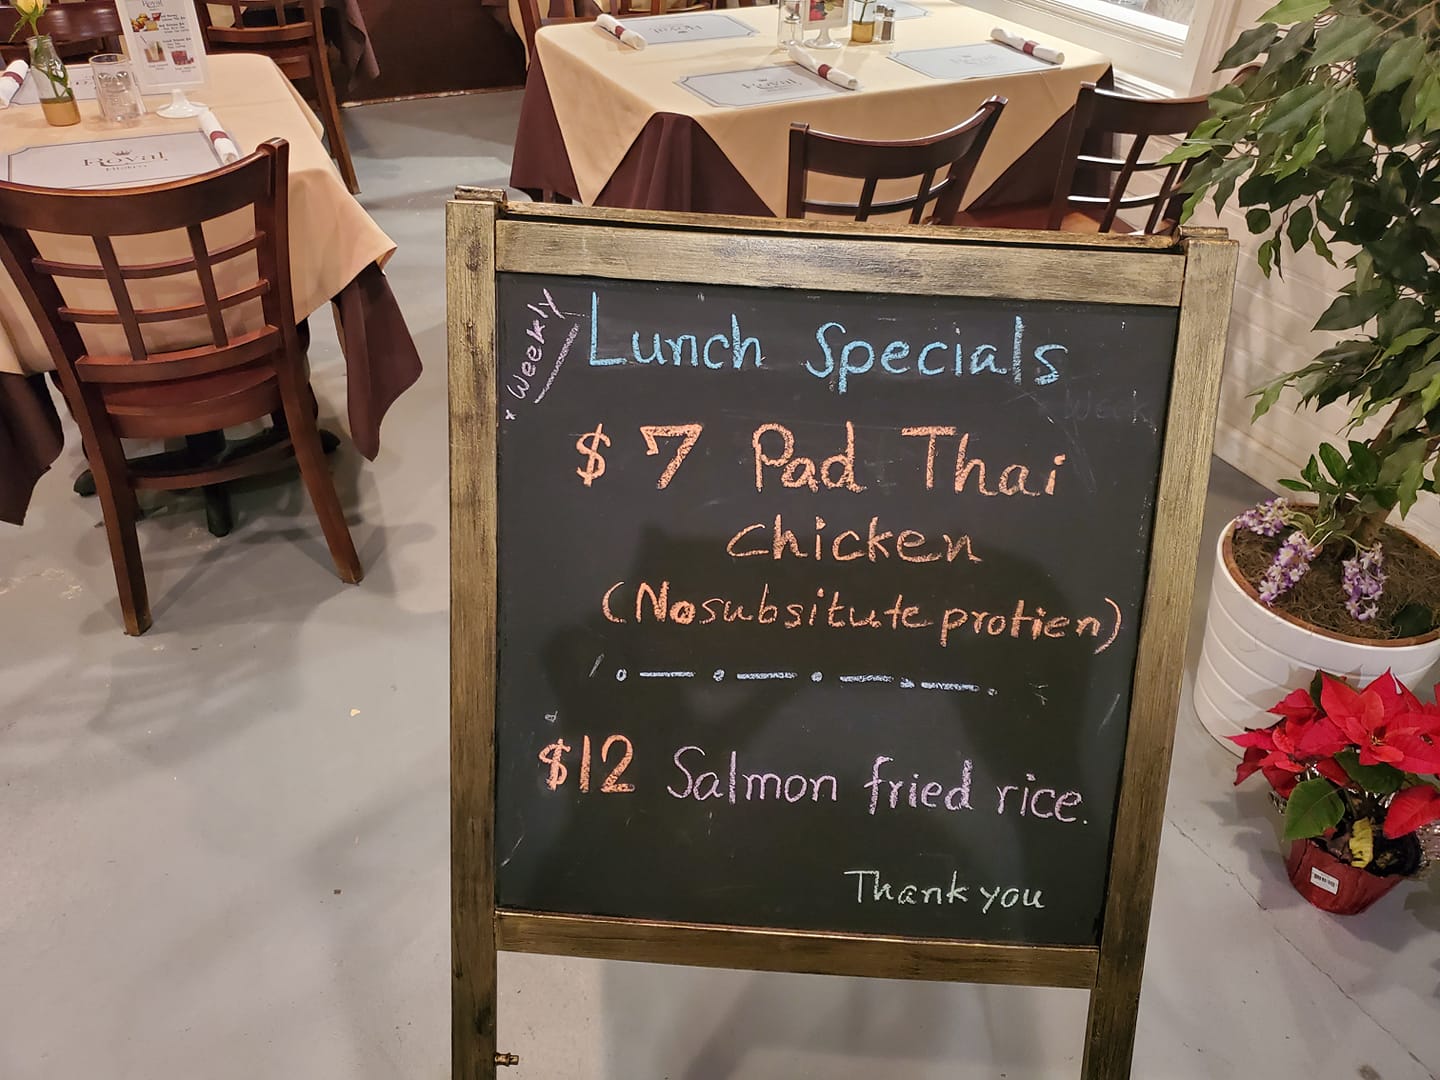 Royal
Royal
Royal
Royal
* Weekly
Lunch Specials
Week
$7 Pad Thai
chicken
(No subsitute protien)
$12 Salmon fried rice.
Thank you